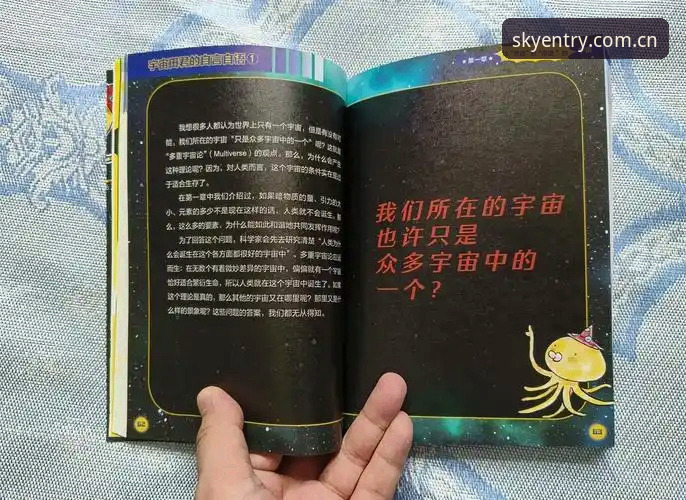 skyentry.com.cn
宇宙田君的自言自语①
第一章
我想很多人都认为世界上只有一个宇宙，但是有没有可
能，我们所在的宇宙“只是众多宇宙中的一个”呢？这就是
“多重宇宙论”（Multiverse）的观点。那么，为什么会产生
这种理论呢？因为，对人类而言，这个宇宙的条件实在是过
于适合生存了。
在第一章中我们介绍过，如果暗物质的量、引力的大
小、元素的多少不是现在这样的话，人类就不会诞生。那
么，这么多的要素，为什么能如此和谐地共同发挥作用呢？
为了回答这个问题，科学家会先去研究清楚“人类为什
么会诞生在这个各方面都很好的宇宙中”。多重宇宙论应运
而生：在无数个有着微妙差异的宇宙中，偏偏就有一个宇宙
恰好适合繁衍生命，所以人类就在这个宇宙中诞生了。如果
这个理论是真的，那么其他的宇宙又在哪里呢？那里又是什
么样的景象呢？这些问题的答案，我们都无从得知。
我们所在的宇宙
也许只是
众多宇宙中的
一个？